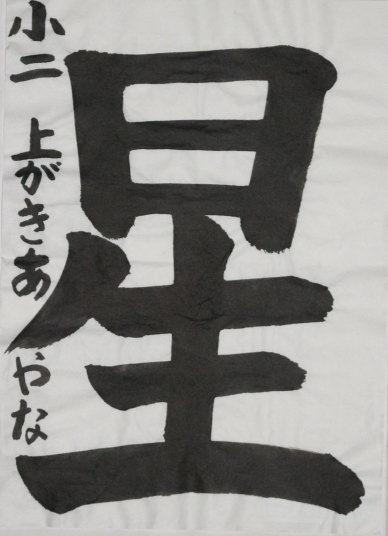 星
小二 上がきあやな